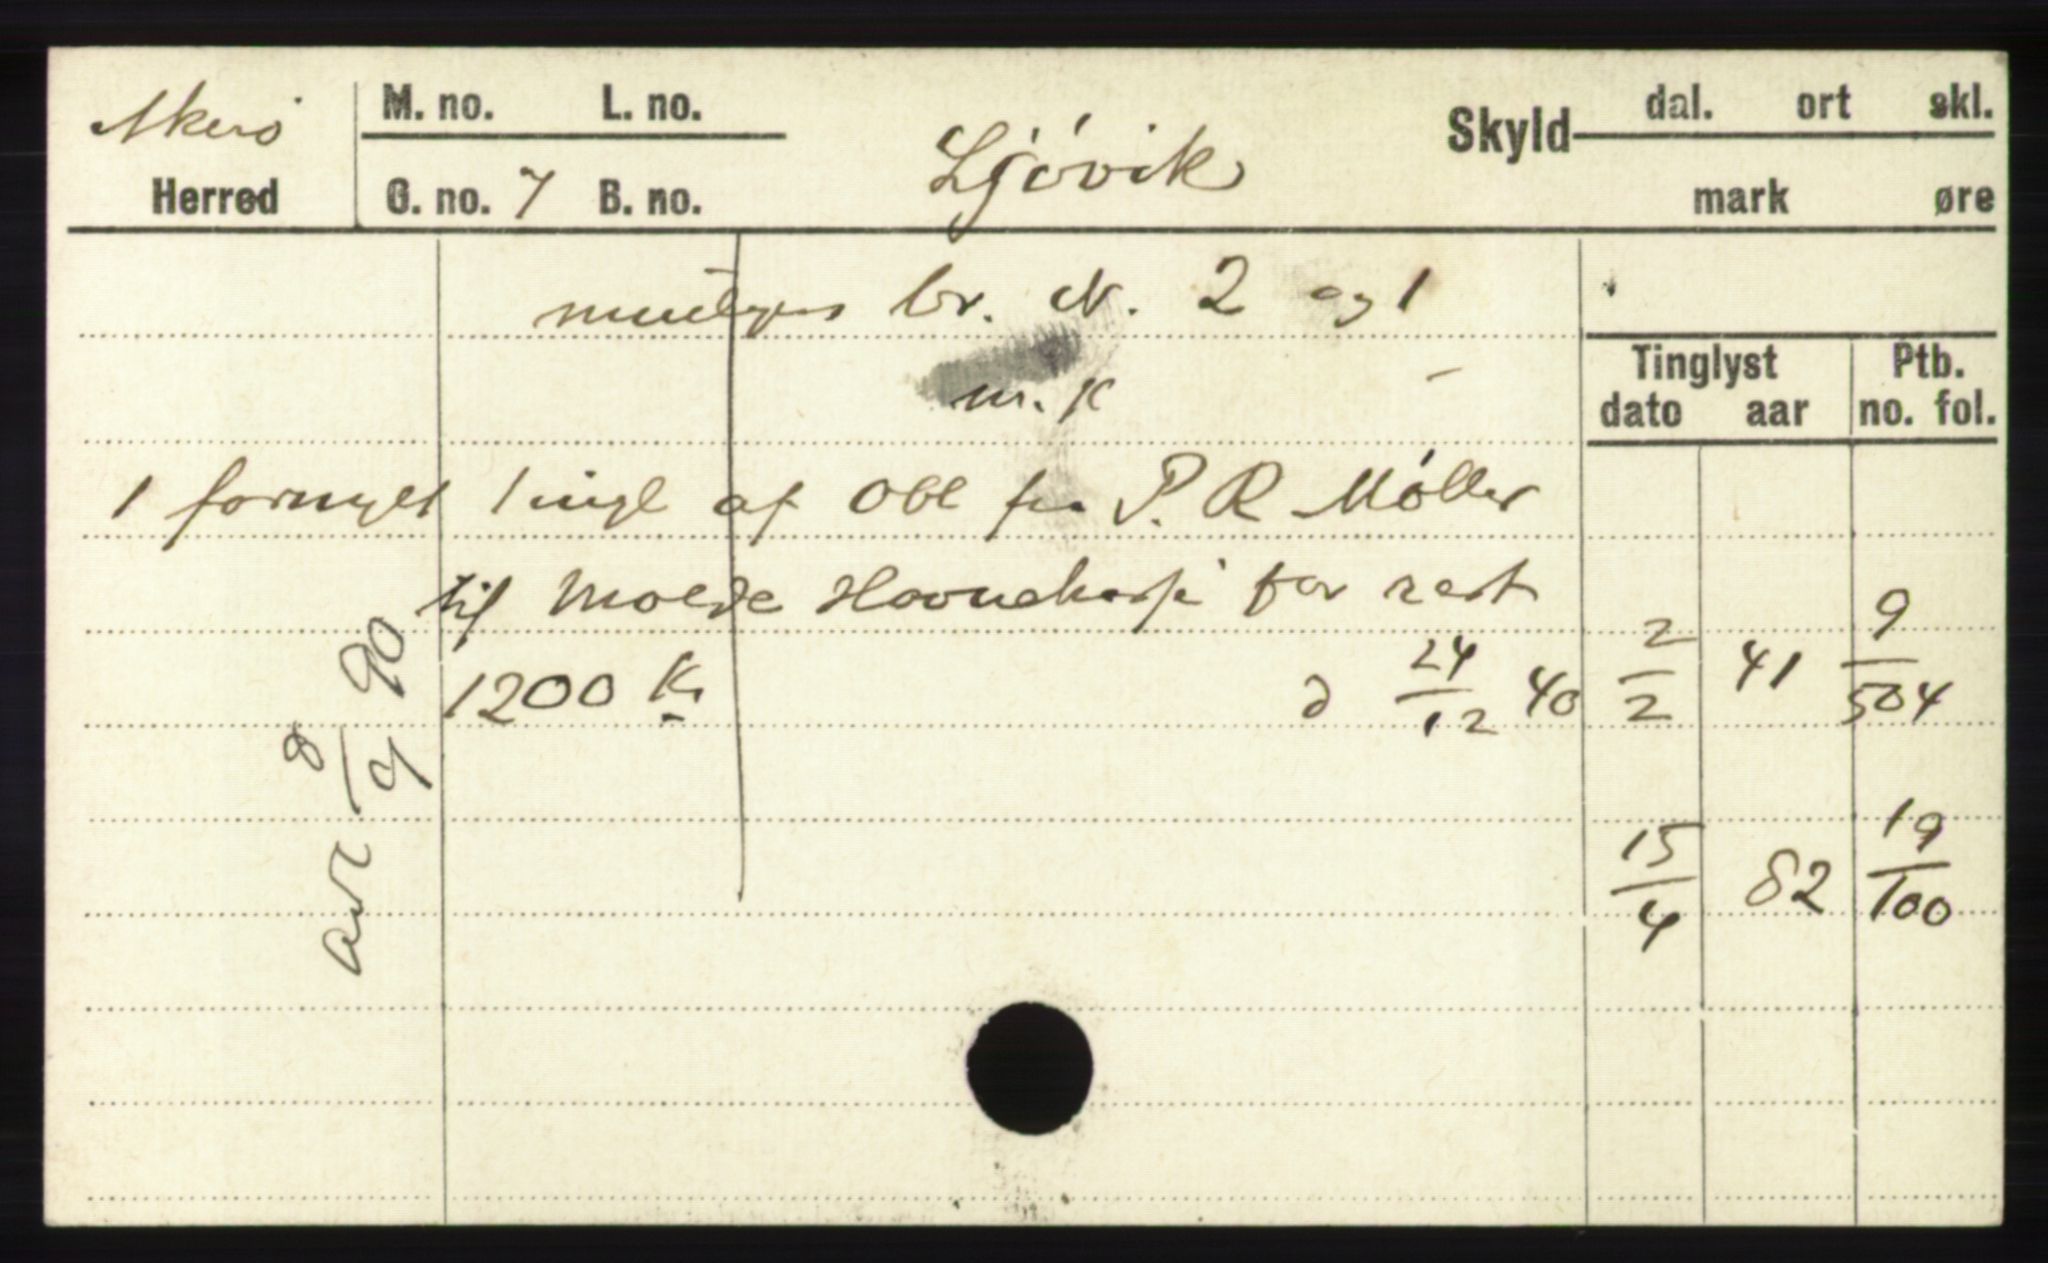 Akerö M. no. L. no. Ljövik Skyld dal. ort skl.
Herred G. no. 7 B. no. mark øre
muligens br. N. 2 og 1
m. K
Tinglyst Ptb.
dato aar no. fol.
1 fornyet Tingl af Obl fra P. R Möller
til Molde Havnekasse for rest
1200 Kr d 24/12 40 2/2 41 9/504
15/4 82 19/100
avl 8/9 90